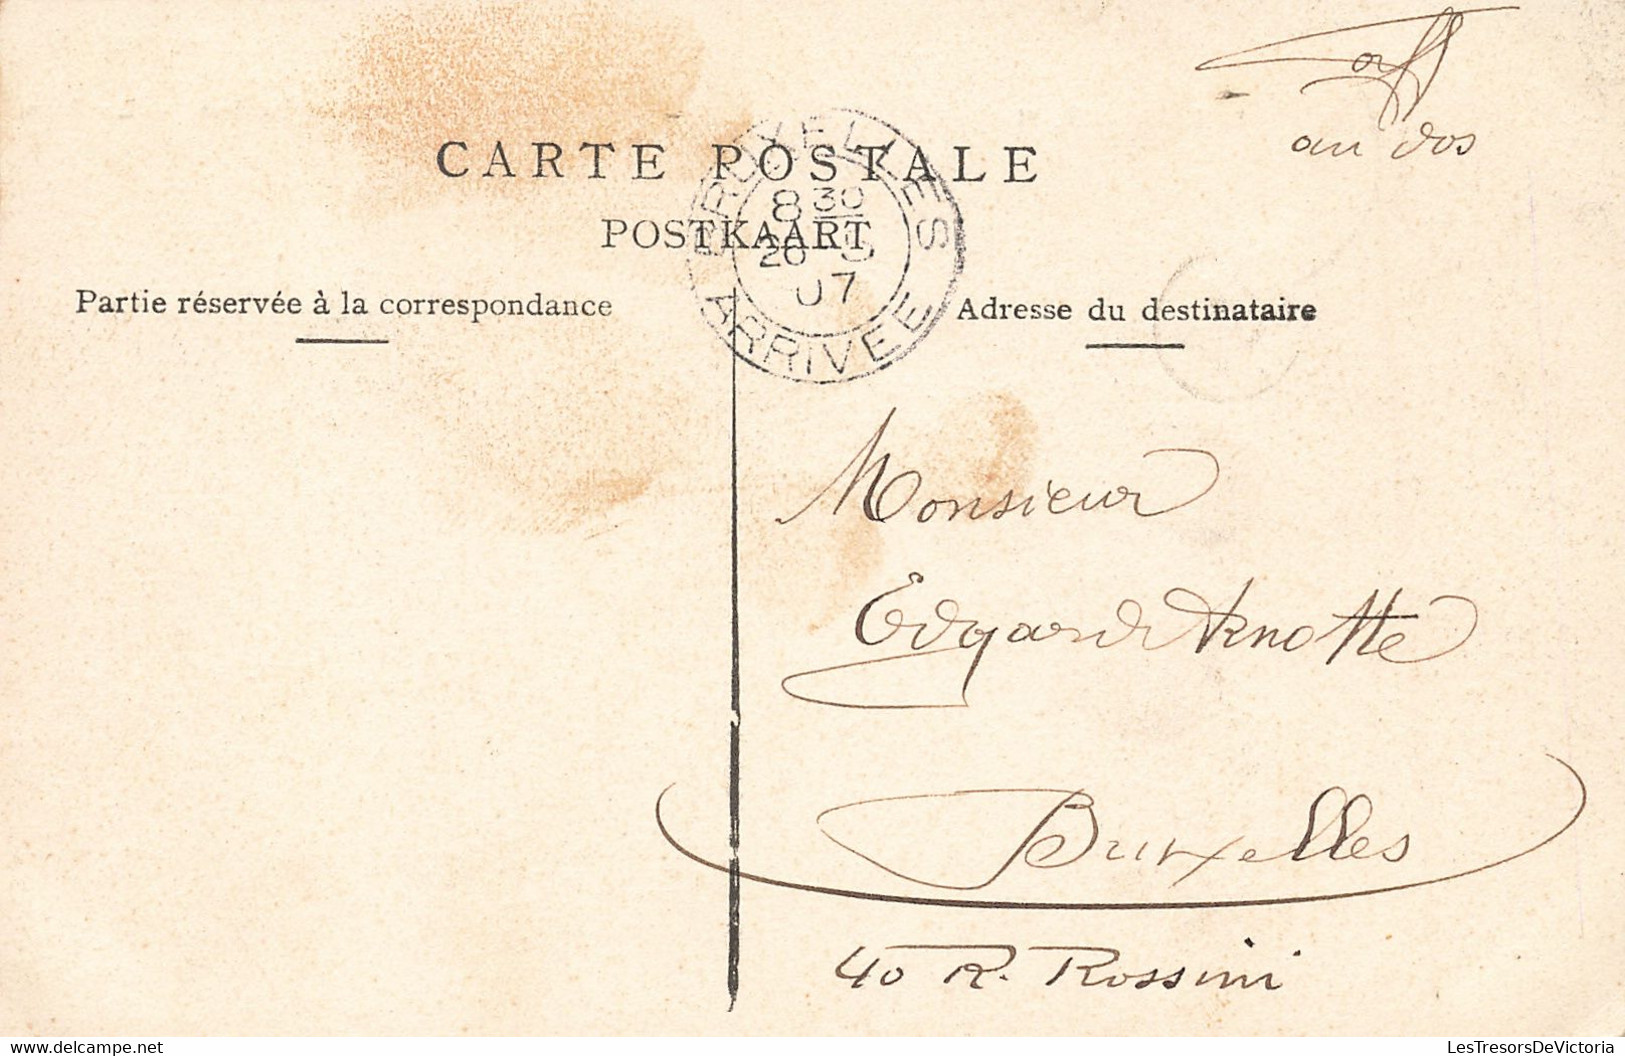 aff
au dos
CARTE POSTALE
POSTKAART
BRUXELLES
8 30
26
07
ARRIVEE
Partie réservée à la correspondance
Adresse du destinataire
Monsieur
Edgard Arnotte
Bruxelles
40 R. Rossini
delcampe.net
LesTresorsDeVictoria